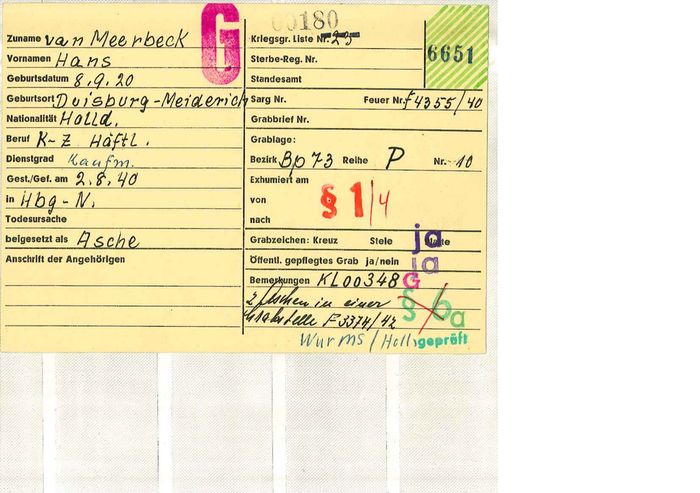 G
00180
Zuname van Meerbeck
Kriegsgr. Liste Nr. 25
6651
Vornamen Hans
Sterbe-Reg. Nr.
Geburtsdatum 8.9.20
Standesamt
Geburtsort Duisburg-Meiderich
Sarg Nr. Feuer Nr. F4355/40
Nationalität Holld.
Grabbrief Nr.
Beruf K-Z Häftl.
Grablage:
Dienstgrad Kaufm.
Bezirk Bp 73 Reihe P Nr. 10
Gest./Gef. am 2.8.40
Exhumiert am
in Hbg-N.
von
§ 1/4
Todesursache
nach
beigesetzt als Asche
Grabzeichen: Kreuz Stele
ja
Anschrift der Angehörigen
Öffentl. gepflegtes Grab ja/nein
ja
Bemerkungen KL00348
G
2 Aschen in einer
§ 6a
Grabstelle F3374/42
Wurms/Holl.
geprüft